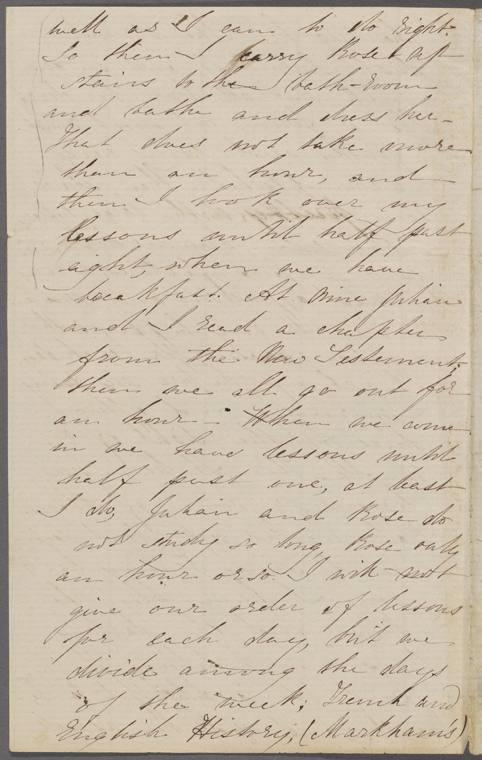 well as I can to do right.
So then I carry Rose up
stairs to the bath-room
and bathe and dress her.
That does not take more
than an hour, and
then I look over my
lessons until half past
eight, when we have
breakfast. At nine Julian
and I read a chapter
from the New Testement.
then we all go out for
an hour. When we come
in we have lessons until
half past one, at least
I do, Julian and Rose do
not study so long, Rose only
an hour or so. I will not
give our order of lessons
for each day, but we
divide among the days
of the week; French and
English History, (Markham's)